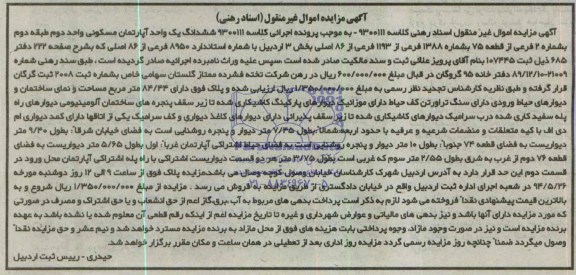 آگهی مزایده اموال غیرمنقول (اسناد رهنی)
آگهی مزایده اموال غیر منقول اسناد رهنی کلاسه ۹۳۰۰۱۱۱ - به موجب پرونده اجرائی کلاسه ۹۳۰۰۱۱۱ ششدانگ یک واحد آپارتمان مسکونی واحد دوم طبقه دوم
بشماره ۲ فرعی از قطعه ۷۵ بشماره ۱۳۸۸ فرعی از ۱۱۹۳ فرعی از ۸۶ اصلی بخش ۳ اردبیل با شماره استاندارد ۸۹۵۰ فرعی از ۸۶ اصلی که بشرح صفحه ۲۲۲ دفتر
۶۸۵ ذیل ثبت ۱۰۷۴۴۵ بنام آقای پرویز ملائی ثبت و سند مالکیت صادر شده است .سپس علیه وراث نامبرده اجرائیه صادر گردیده است، طبق سند رهنی شماره
۲۱۰۰۹-۸۹/۱۲/۱۰ دفتر خانه ۹۵ گروگان در قبال مبلغ ۶۰۰/۰۰۰/۰۰۰ ریال در رهن شرکت تخته فشرده ممتاز گلستان سهامی خاص بشماره ثبت ۲۰۰۸ ثبت گرگان
قرار گرفته و طبق نظریه کارشناس تجدید نظر رسمی به مبلغ ۱/۳۵۰/۰۰۰/۰۰۰ ریال ارزیابی شده و پلاک فوق دارای ۸۴/۴۳ متر مربع مساحت و نمای ساختمان و
دیوارهای حیاط ورودی دارای سنگ تراورتن کف حیاط دارای موزائیک دیوارهای پارکینگ کاشیکاری شده تا زیر سقف پنجره های ساختمان آلومینیومی دیوارهای راه
پله سفید کاری شده درب سرامیک دیوارهای کاشیکاری شده تا زیر سقف پذیرائی دارای دیوارهای کاغذ دیواری و کف سرامیک یکی از اتاقها دارای کمد دیواری ام
دی اف با کلیه متعلقات و منضمات شرعیه و عرفیه با حدود اربعه شمالا" بطول ۷/۴۵ متر دیوار و پنجره روشنایی است به فضای خیابان شرقا": بطول ۹/۴۰ متر
دیواریست به فضای قطعه ۷۴ جنوبا": بطول ۱۰ متر دیوار و پنجره روشنایی است به فضای حیاط اشتراکی آپارتمان غربا": اول بطول ۵/۶۵ متر دیواریست به فضای
قطعه ۷۶ دوم از غرب به شرق بطول ۲/۵۵ متر سوم که غربی است بطول ۳/۷۵ متر هر دو قسمت دیواریست اشتراکی با راه پله اشتراکی آپارتمان محل ورود در
قسمت دوم این حد قرار دارد به آدرس اردبیل شهرک کارشناسان خیابان وصول کوچه وصال می باشدمزایده پلاک فوق از ساعت ۹ الی ۱۲ روز دوشنبه مورخه
۹۴/۵/۲۶ در شعبه اجرای اداره ثبت اردبیل واقع در خیابان دادگستری از طریق مزایده به فروش می رسد . مزایده از مبلغ ۱/۳۵۰/۰۰۰/۰۰۰ ریال شروع و به
بالاترین قیمت پیشنهادی نقدا" فروخته می شود لازم به ذکر است پرداخت بدهی های مربوط به آب ،برق،گاز اعم از حق انشعاب و یا حق اشتراک و مصرف در صورتی
که مورد مزایده دارای آنها باشد و نیز بدهی های مالیاتی و عوارض شهرداری و غیره تا تاریخ مزایده اعم از اینکه رقم قطعی آن معلوم شده یا نشده باشد به عهده
برنده مزایده است و نیز در صورت وجود مازاد، وجوه پرداختی بابت هزینه های فوق از محل مازاد به برنده مزایده مسترد خواهد شد و نیم عشر و حق مزایده نقدا"
وصول میگردد ضمنا" چنانچه روز مزایده رسمی گردد مزایده روز اداری بعد از تعطیلی در همان ساعت و مکان مقرر برگزار خواهد شد.
حیدری - رییس ثبت اردبیل